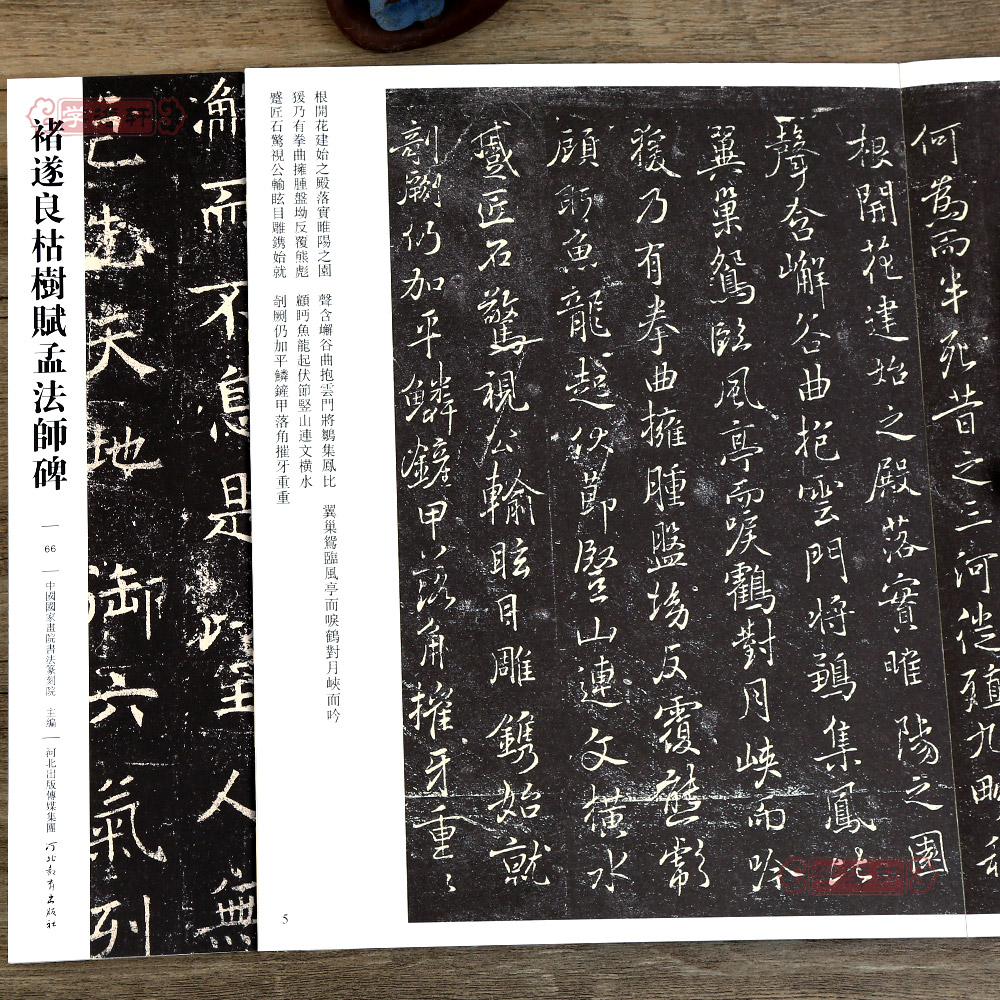 褚遂良枯樹賦孟法師碑
66
中國國家畫院書法篆刻院 主編
河北出版傳媒集團
河北教育出版社
而不息是以聖人無
先天地御六氣列
何爲而半死昔之三河徙殖九畹移
根開花建始之殿落實睢陽之園
聲含嶰谷曲抱雲門將鶵集鳳比
翼巢鴛臨風亭而唳鶴對月峽而吟
猨乃有拳曲擁腫盤坳反覆熊彪
顧眄魚龍起伏節竪山連文橫水
蹙匠石驚視公輸眩目雕鐫始就
剞劂仍加平鱗鏟甲落角摧牙重重
根開花建始之殿落實睢陽之園 聲含嶰谷曲抱雲門將鶵集鳳比 翼巢鴛臨風亭而唳鶴對月峽而吟
猨乃有拳曲擁腫盤坳反覆熊彪 顧眄魚龍起伏節竪山連文橫水
蹙匠石驚視公輸眩目雕鐫始就 剞劂仍加平鱗鏟甲落角摧牙重重
5